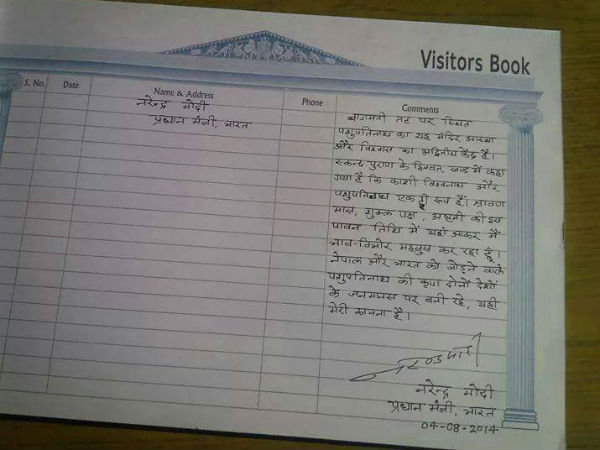 Visitors Book
S. No.
Date
Name & Address
Phone
Comments
नरेन्द्र मोदी
प्रधान मंत्री, भारत
बागमती तट पर स्थित
पशुपतिनाथ का यह मंदिर आस्था
और विश्वास का अद्वितीय केंद्र है।
स्कन्द पुराण के हिमवत खंड में कहा
गया है कि काशी विश्वनाथ और
पशुपतिनाथ एक ही रूप हैं। श्रावण
मास, शुक्ल पक्ष, अष्टमी की इस
पावन तिथि में यहां आकर मैं
भाव-विभोर महसूस कर रहा हूँ।
नेपाल और भारत को जोड़ने वाले
पशुपतिनाथ की कृपा दोनों देशों
के जनमानस पर बनी रहे, यही
मेरी कामना है।
नरेन्द्र मोदी
प्रधान मंत्री, भारत
04-08-2014